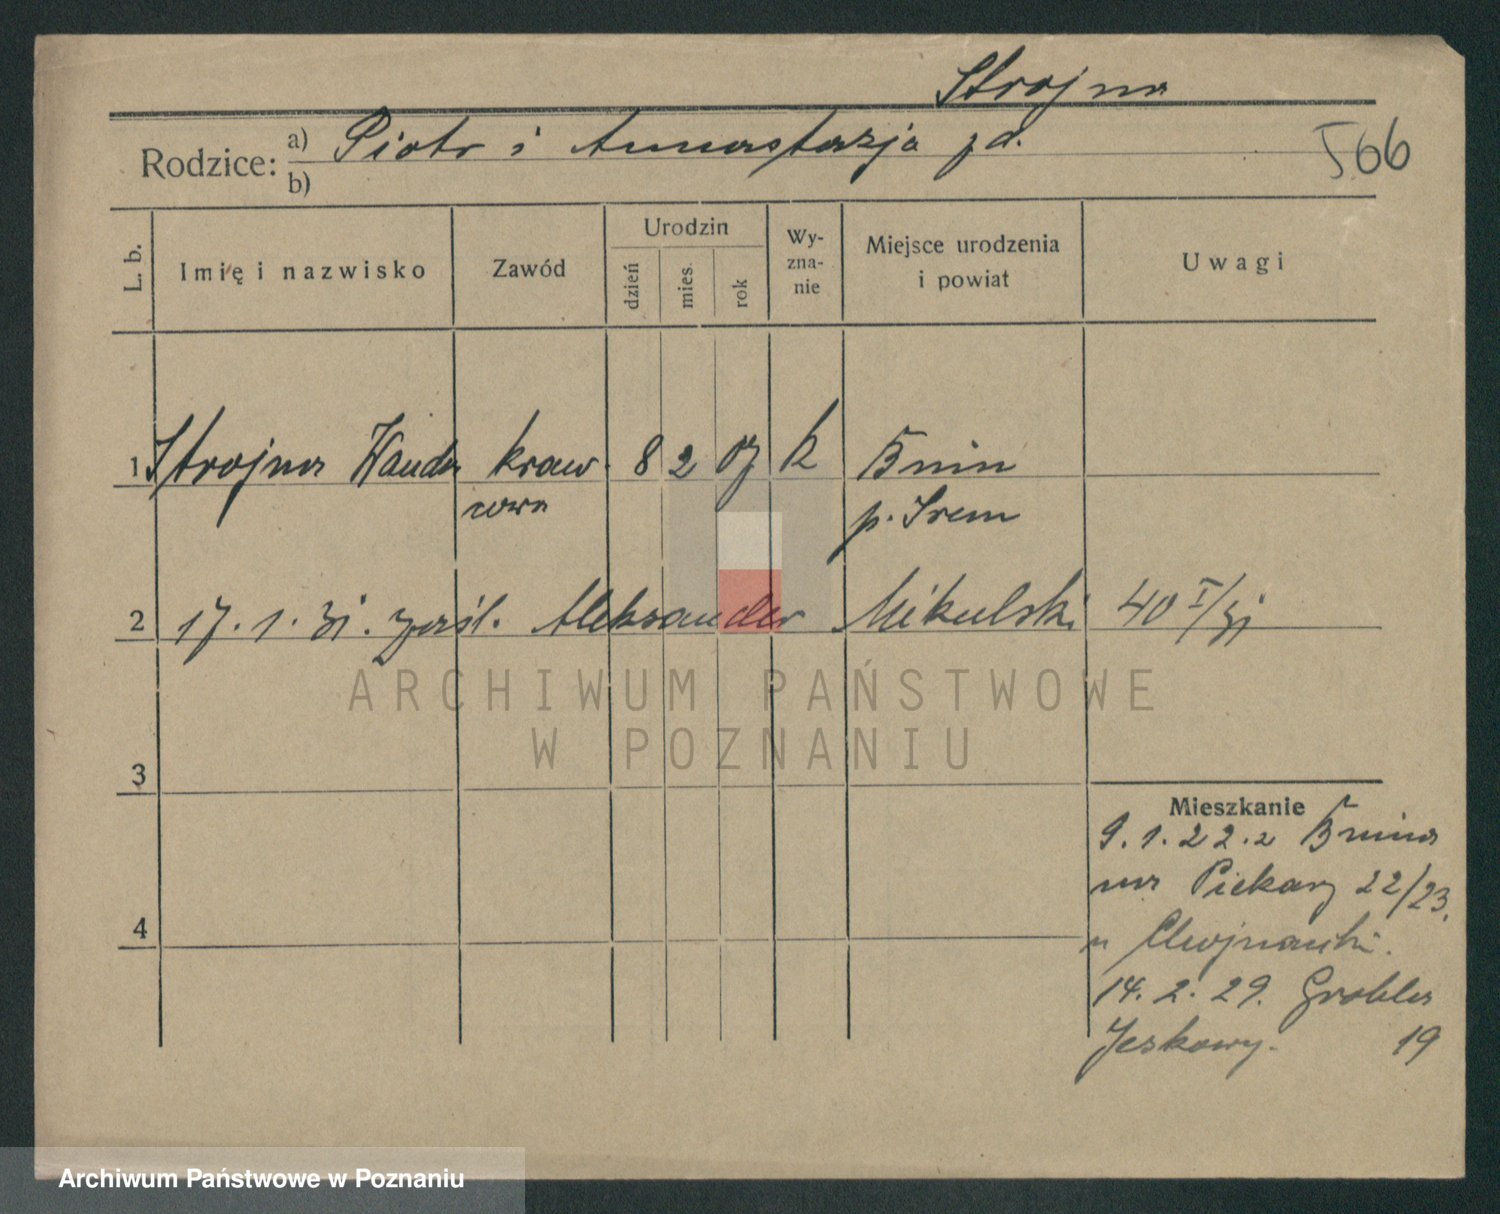 Strojna
Rodzice: a) Piotr i Anastazja zd.
b)
566
L. b.
Imię i nazwisko
Zawód
Urodzin
dzień
mies.
rok
Wy-
zna-
nie
Miejsce urodzenia
i powiat
Uwagi
1 Strojna Wanda kraw- 8 2 07 k Bnin
cowa p. Śrem
2 17.1.31. zaśl. Aleksander Mikulski 40 I/31
ARCHIWUM PAŃSTWOWE
W POZNANIU
3
Mieszkanie
9.1.22. z Bnina
na Piekary 22/23.
u
4
14.2.29. Grobla
19
Archiwum Państwowe w Poznaniu